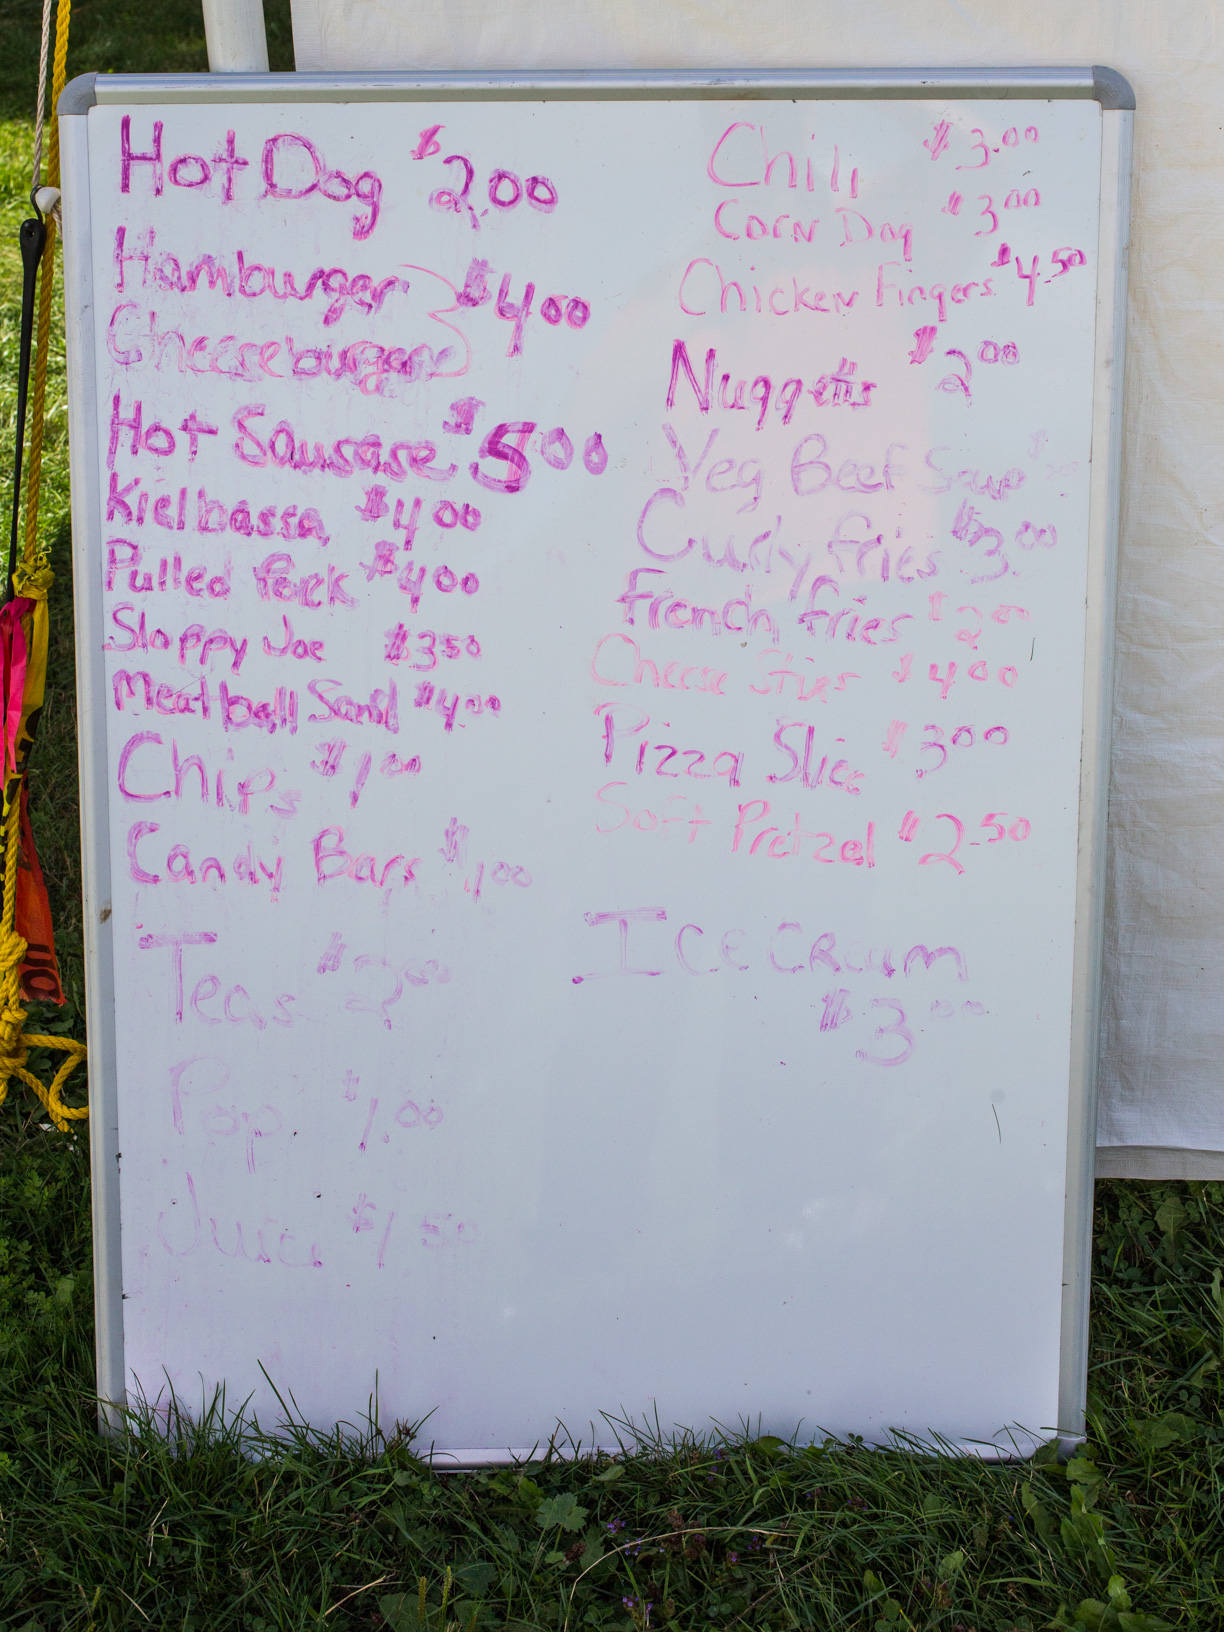 Hot Dog $2.00
Hamburger $4.00
Cheeseburger
Hot Sausase $5.00
Kielbassa $4.00
Pulled Pork $4.00
Sloppy Joe $3.50
Meatball Sand $4.00
Chips $1.00
Candy Bars $1.00
Teas $2.00
Pop $1.00
Juice $1.50
Chili $3.00
Corn Dog $3.00
Chicken Fingers $4.50
Nuggetts $2.00
Veg Beef Soup
Curly fries $3.00
French fries $2.00
Cheese Stixs $4.00
Pizza Slice $3.00
Soft Pretzel $2.50
ICE CReam
$3.00